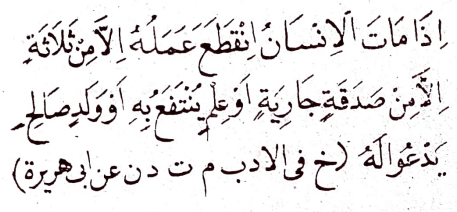 اِذَا مَاتَ الْاِنْسَانُ اِنْقَطَعَ عَمَلُهُ اِلاَّ مِنْ ثَلَاثَةٍ
اِلاَّ مِنْ صَدَقَةٍ جَارِيَةٍ اَوْ عِلْمٍ يُنْتَفَعُ بِهِ اَوْ وَلَدٍ صَالِحٍ
يَدْعُوا لَهُ (خ فى الادب م ت د ن عن ابى هريرة)